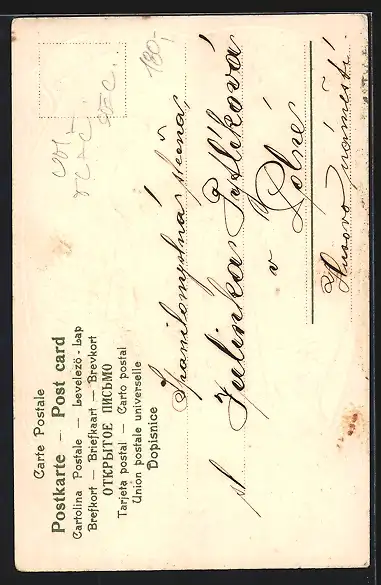 Carte Postale
Postkarte — Post card
Cartolina Postale — Levelező-Lap
Brefkort — Briefkaart — Brevkort
ОТКРЫТОЕ ПИСЬМО
Tarjeta postal — Carto postal
Union postale universelle
Dopisnice
180.-
slečna
Julinka
v Polné
Husovo náměstí.